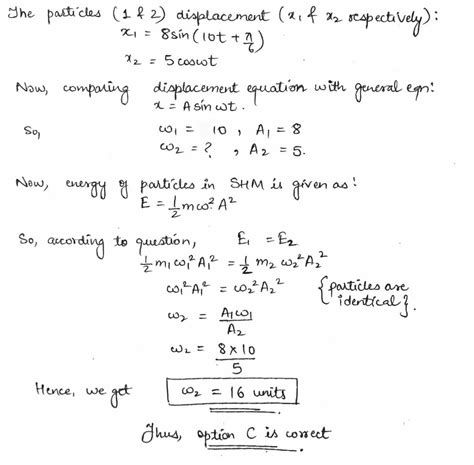 The particles (1 & 2) displacement (x₁ & x₂ respectively):
x₁ = 8sin(10t + π/6)
x₂ = 5cosωt
Now, comparing displacement equation with general eqn:
x = A sin ωt.
So, ω₁ = 10 , A₁ = 8
ω₂ = ? , A₂ = 5.
Now, energy of particles in SHM is given as:
E = 1/2 mω² A²
So, according to question, E₁ = E₂
1/2 m₁ ω₁² A₁² = 1/2 m₂ ω₂² A₂²
ω₁² A₁² = ω₂² A₂² {particles are identical}.
ω₂ = A₁ω₁/A₂
ω₂ = 8 × 10/5
Hence, we get ω₂ = 16 units
Thus, option C is correct